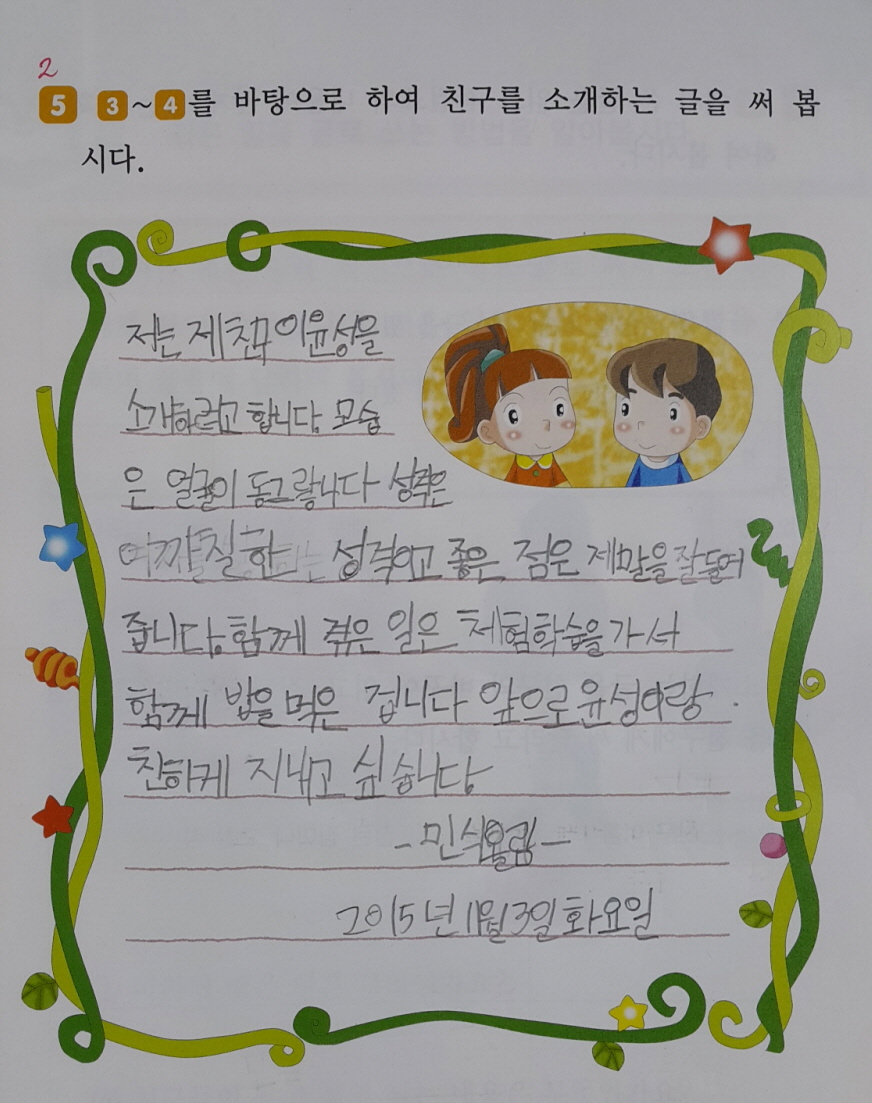 2
5 3~4를 바탕으로 하여 친구를 소개하는 글을 써 봅
시다.
저는 제 친구 이윤성을
소개하려고 합니다. 모습
은 얼굴이 동그랗니다 성격은
성격이고 좋은 점은 제말을 잘 들어
줍니다. 함께 겪은 일은 체험학습을 가서
함께 밥을 먹은 겁니다 앞으로 윤성이랑
친하게 지내고 싶습니다
-민식올림-
2015년 11월 3일 화요일